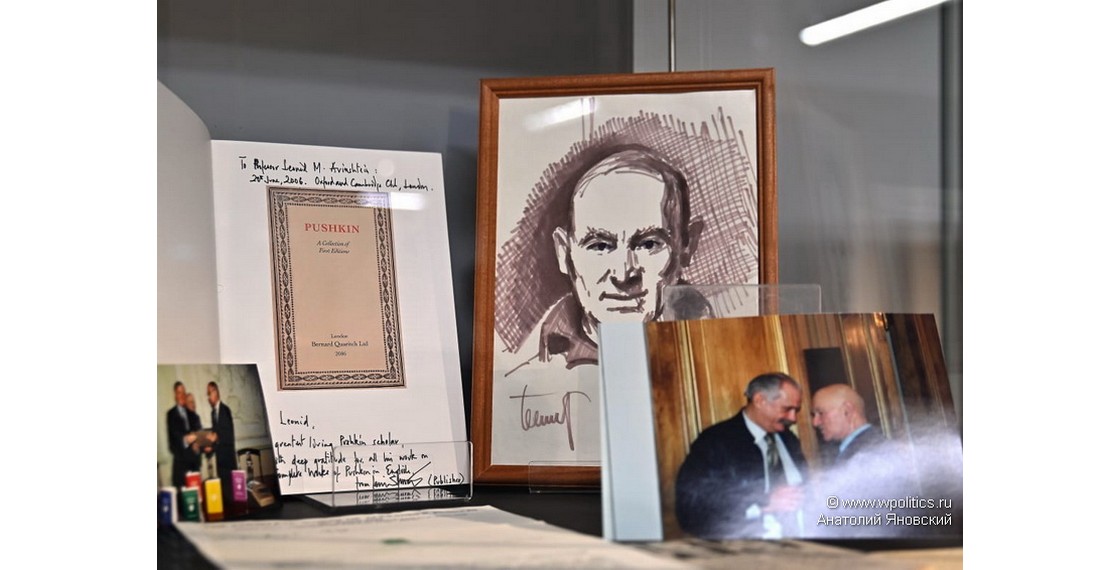 To Professor Leonid M. Arinshtein:
29th June, 2006. Oxford and Cambridge Club, London.
PUSHKIN
A Collection of
First Editions
London
Bernard Quaritch Ltd
2006
Leonid,
greatest living Pushkin scholar,
with deep gratitude for all his work on
Complete Works of Pushkin in English
from (Publisher)
© www.wpolitics.ru
Анатолий Яновский